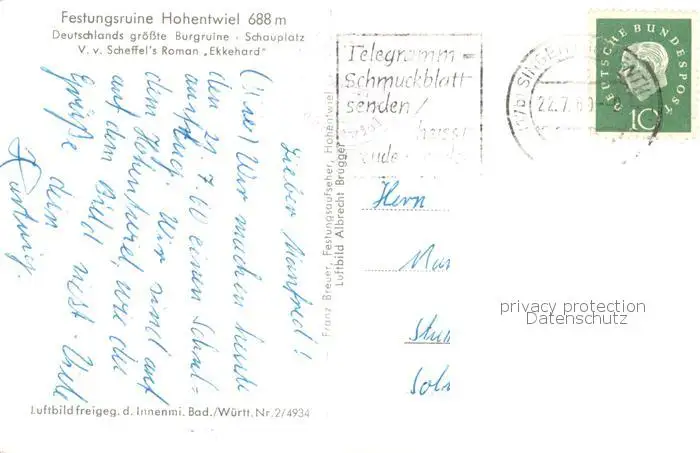 Festungsruine Hohentwiel 688 m
Deutschlands größte Burgruine · Schauplatz
V. v. Scheffel's Roman „Ekkehard"
Lieber Manfred!
Wir machen heute
den 21.7.60 einen Schul=
ausflug. Wir sind auf
dem Hohentwiel, wie du
auf dem Bild siest. Viele
Grüße dein
Hartwig.
Luftbildfreigeg. d. Innenmi. Bad./Württ. Nr. 2/4934
Franz Breuer, Festungsaufseher, Hohentwiel
Luftbild Albrecht Brugger
Telegramm=
Schmuckblatt
senden/
heisst
SINGEN
22.7.60
DEUTSCHE BUNDESPOST
10
Herrn
privacy protection
Datenschutz